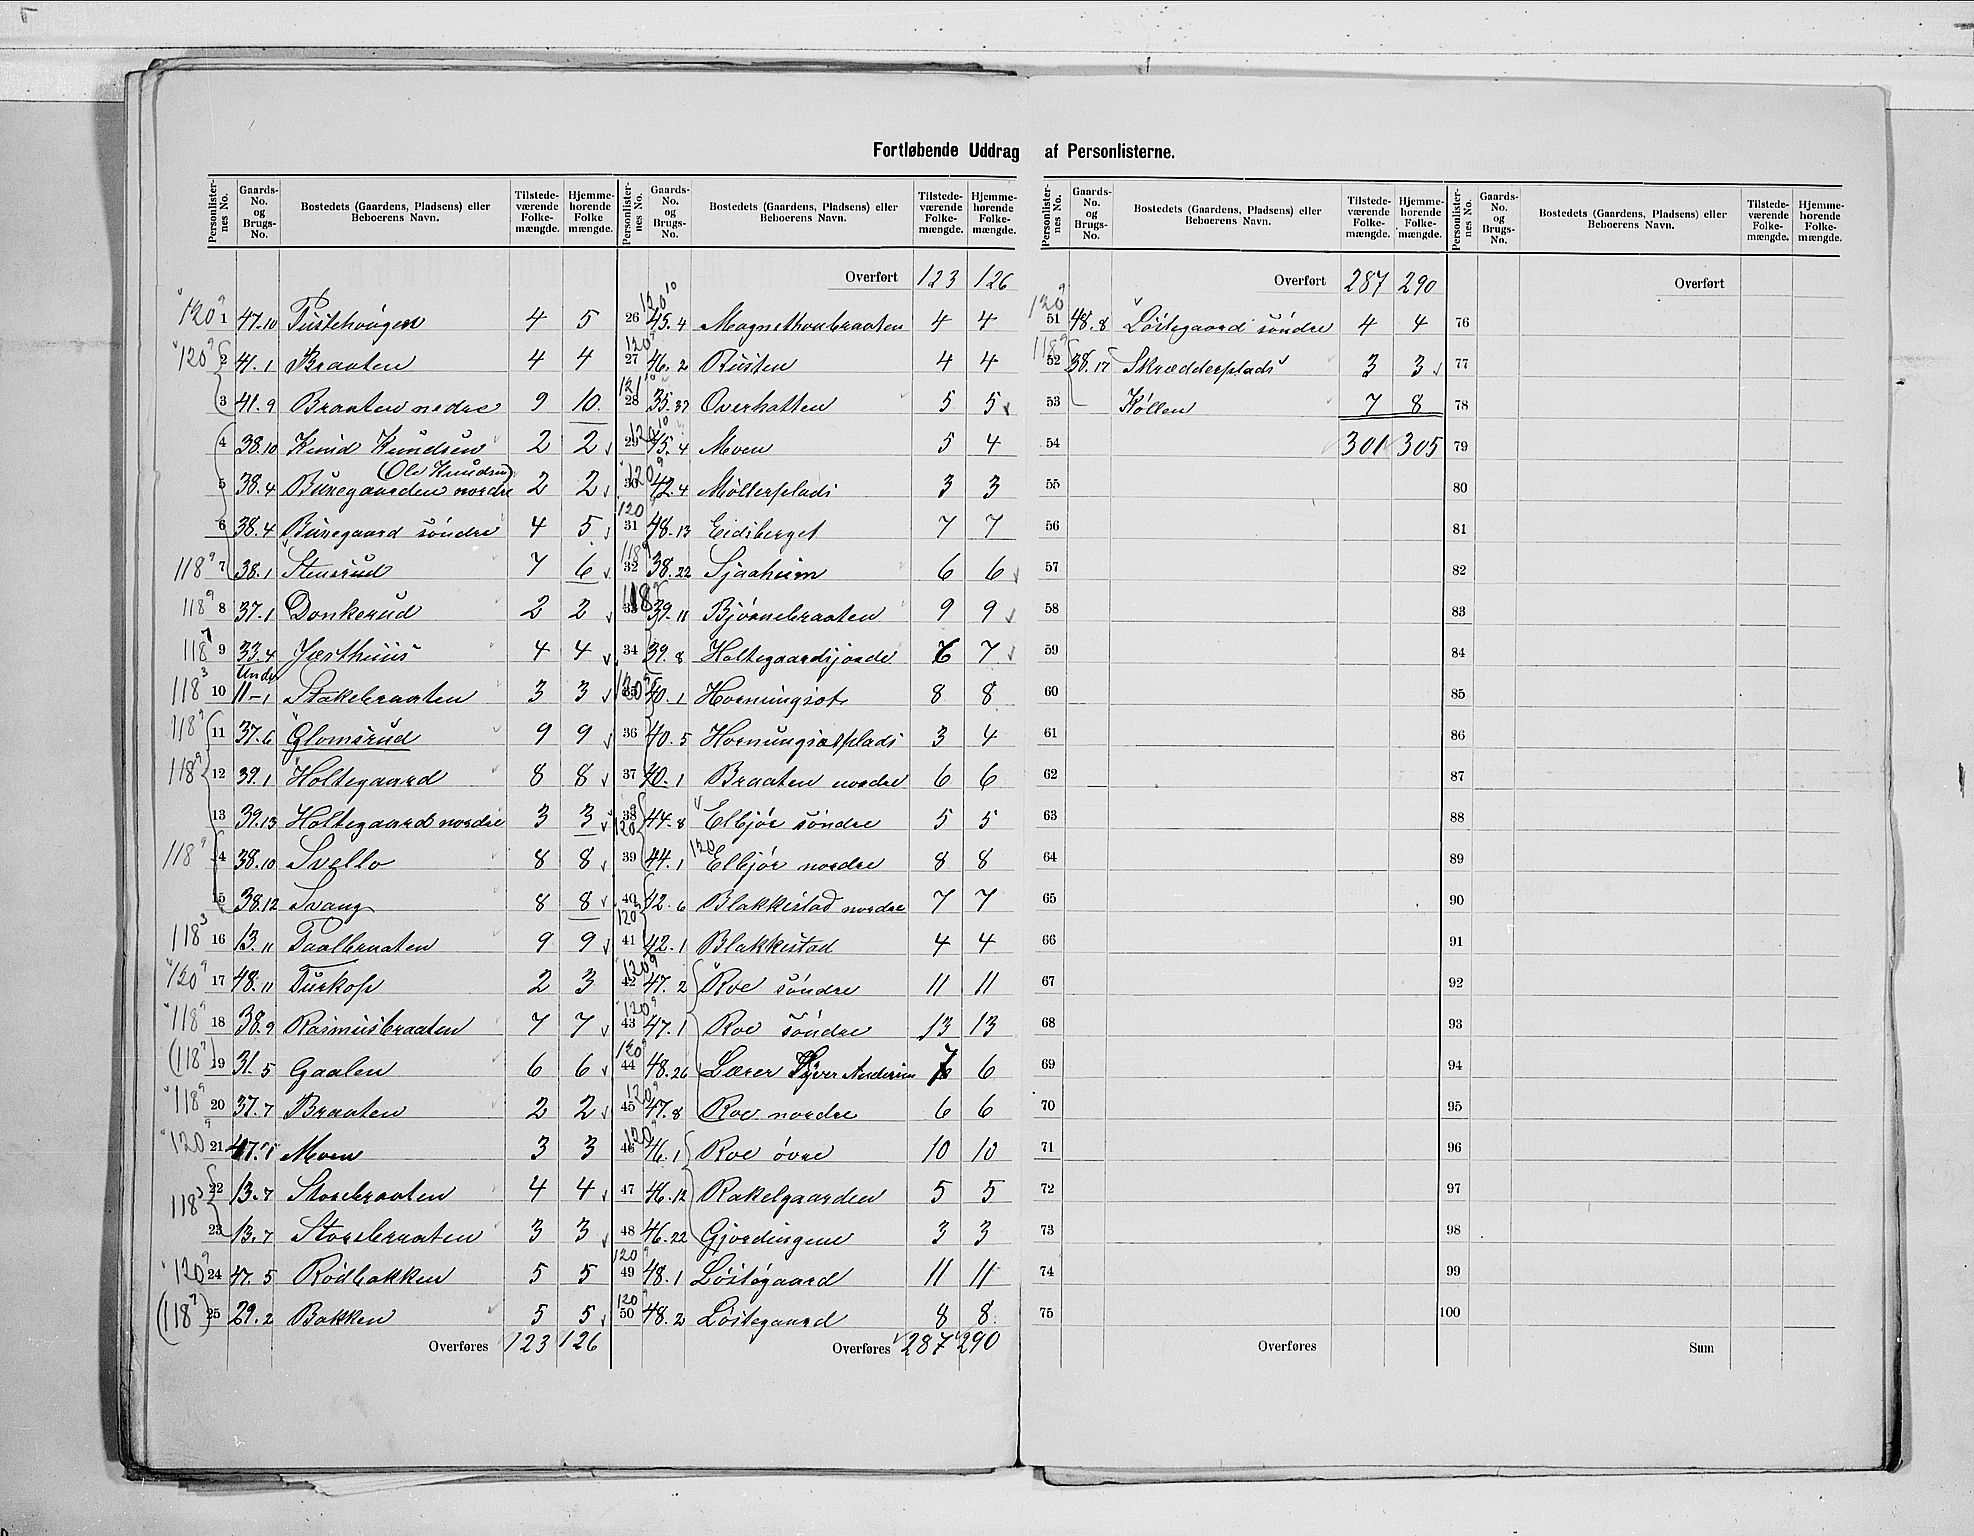 Fortløbende Uddrag af Personlisterne.
Personlister-nes No. Gaards-No. og Brugs-No. Bostedets (Gaardens, Pladsens) eller Beboerens Navn. Tilstede-værende Folke-mængde. Hjemme-hørende Folke mængde.
120⁹ 1 47.10 Pustehaugen 4 5
120⁹ 2 41.1 Braaten 4 4
3 41.9 Braaten nedre 9 10
4 38.10 Knud Knudsen 2 2
(Ole Knudsen)
5 38.4 Buregaarden nordre 2 2
6 38.4 Buregaard söndre 4 5
118⁹ 7 38.1 Stensrud 7 6
118⁹ 8 37.1 Donkerud 2 2
118⁷ 9 33.4 Jæsthuus 4 4
118³ 10 11-1 Stakebraaten 3 3
118⁹ 11 37.6 Glomsrud 9 9
118⁹ 12 39.1 Holtegaard 8 8
13 39.13 Holtegaard nordre 3 3
118⁹ 14 38.10 Svello 8 8
15 38.12 Svang 8 8
118³ 16 13.11 Paalbraaten 9 9
120⁹ 17 48.11 Turkop 2 3
118⁹ 18 38.9 Rasmusbraaten 7 7
(118⁷) 19 31.5 Gaalen 6 6
118⁹ 20 37.7 Braaten 2 2
120⁹ 21 47.1 Moen 3 3
118³ 22 13.7 Storebraaten 4 4
23 13.7 Storebraaten 3 3
120⁹ 24 47.5 Rödbakken 5 5
(118⁷) 25 29.2 Bakken 5 5
Overføres 123 126
Personlister-nes No. Gaards-No. og Brugs-No. Bostedets (Gaardens, Pladsens) eller Beboerens Navn. Tilstede-værende Folke-mængde. Hjemme-hørende Folke-mængde.
Overført 123 126
120¹⁰ 26 45.4 Magnethoubraaten 4 4
120⁹ 27 46.2 Rusten 4 4
121¹⁰ 28 35.37 Overhatten 5 5
120¹⁰ 29 45.4 Moen 5 4
120⁹ 30 42.4 Möllerplads 3 3
120 31 48.13 Eidsberget 7 7
118⁹ 32 38.22 Sjaaheim 6 6
118⁹ 33 39.11 Bjórnebraaten 9 9
34 39.8 Holtegaardsjorde 6 7
120⁹ 35 40.1 Hornungsot 8 8
36 40.5 Hornungsotplads 3 4
37 40.1 Braaten nordre 6 6
120⁹ 38 44.8 Elbjör söndre 5 5
39 44.1 120 Elbjör nordre 8 8
40 42.6 Blakkestad nordre 7 7
120⁹ 41 42.1 Blakkestad 4 4
120⁹ 42 47.2 Roe söndre 11 11
120⁹ 43 47.1 Roe söndre 13 13
120⁹ 44 48.26 Lærer Syver Andersen 7 6
120⁹ 45 47.8 Roe nordre 6 6
120⁹ 46 46.1 Roe øvre 10 10
47 46.12 Rakelgaarden 5 5
48 46.22 Gjordingene 3 3
120⁹ 49 48.1 Löstegaard 11 11
120⁹ 50 48.2 Löstegaard 8 8
Overføres 287 290
Personlister-nes No. Gaards-No. og Brugs-No. Bostedets (Gaardens, Pladsens) eller Beboerens Navn. Tilstede-værende Folke-mængde. Hjemme-hørende Folke-mængde.
Overført 287 290
120⁹ 51 48.8 Löstegaard söndre 4 4
118⁹ 52 38.17 Skrædderplads 3 3
53 Køllen 7 8
54 301 305
55
56
57
58
59
60
61
62
63
64
65
66
67
68
69
70
71
72
73
74
75
Overføres
Personlister-nes No. Gaards-No. og Brugs-No. Bostedets (Gaardens, Pladsens) eller Beboerens Navn. Tilstede-værende Folke-mængde. Hjemme-hørende Folke-mængde.
Overført
76
77
78
79
80
81
82
83
84
85
86
87
88
89
90
91
92
93
94
95
96
97
98
99
100
Sum